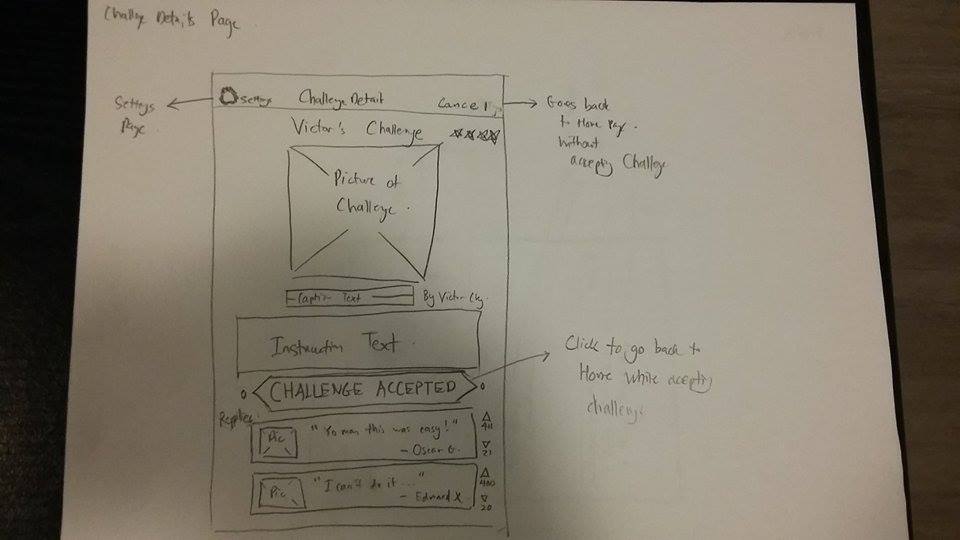 Challge Details Page
Settgs
Page
Settgs Challenge Detail Cancel
Goes back
to Home Page
without
accepting Challenge
Victor's Challenge
Picture of
Challenge
Caption Text
By Victor
Instruction Text
CHALLENGE ACCEPTED
Click to go back to
Home while accepting
challenge
Replies
Pic
"Yo man this was easy!"
- Oscar G.
411
21
Pic
"I can't do it..."
- Edward X.
400
20